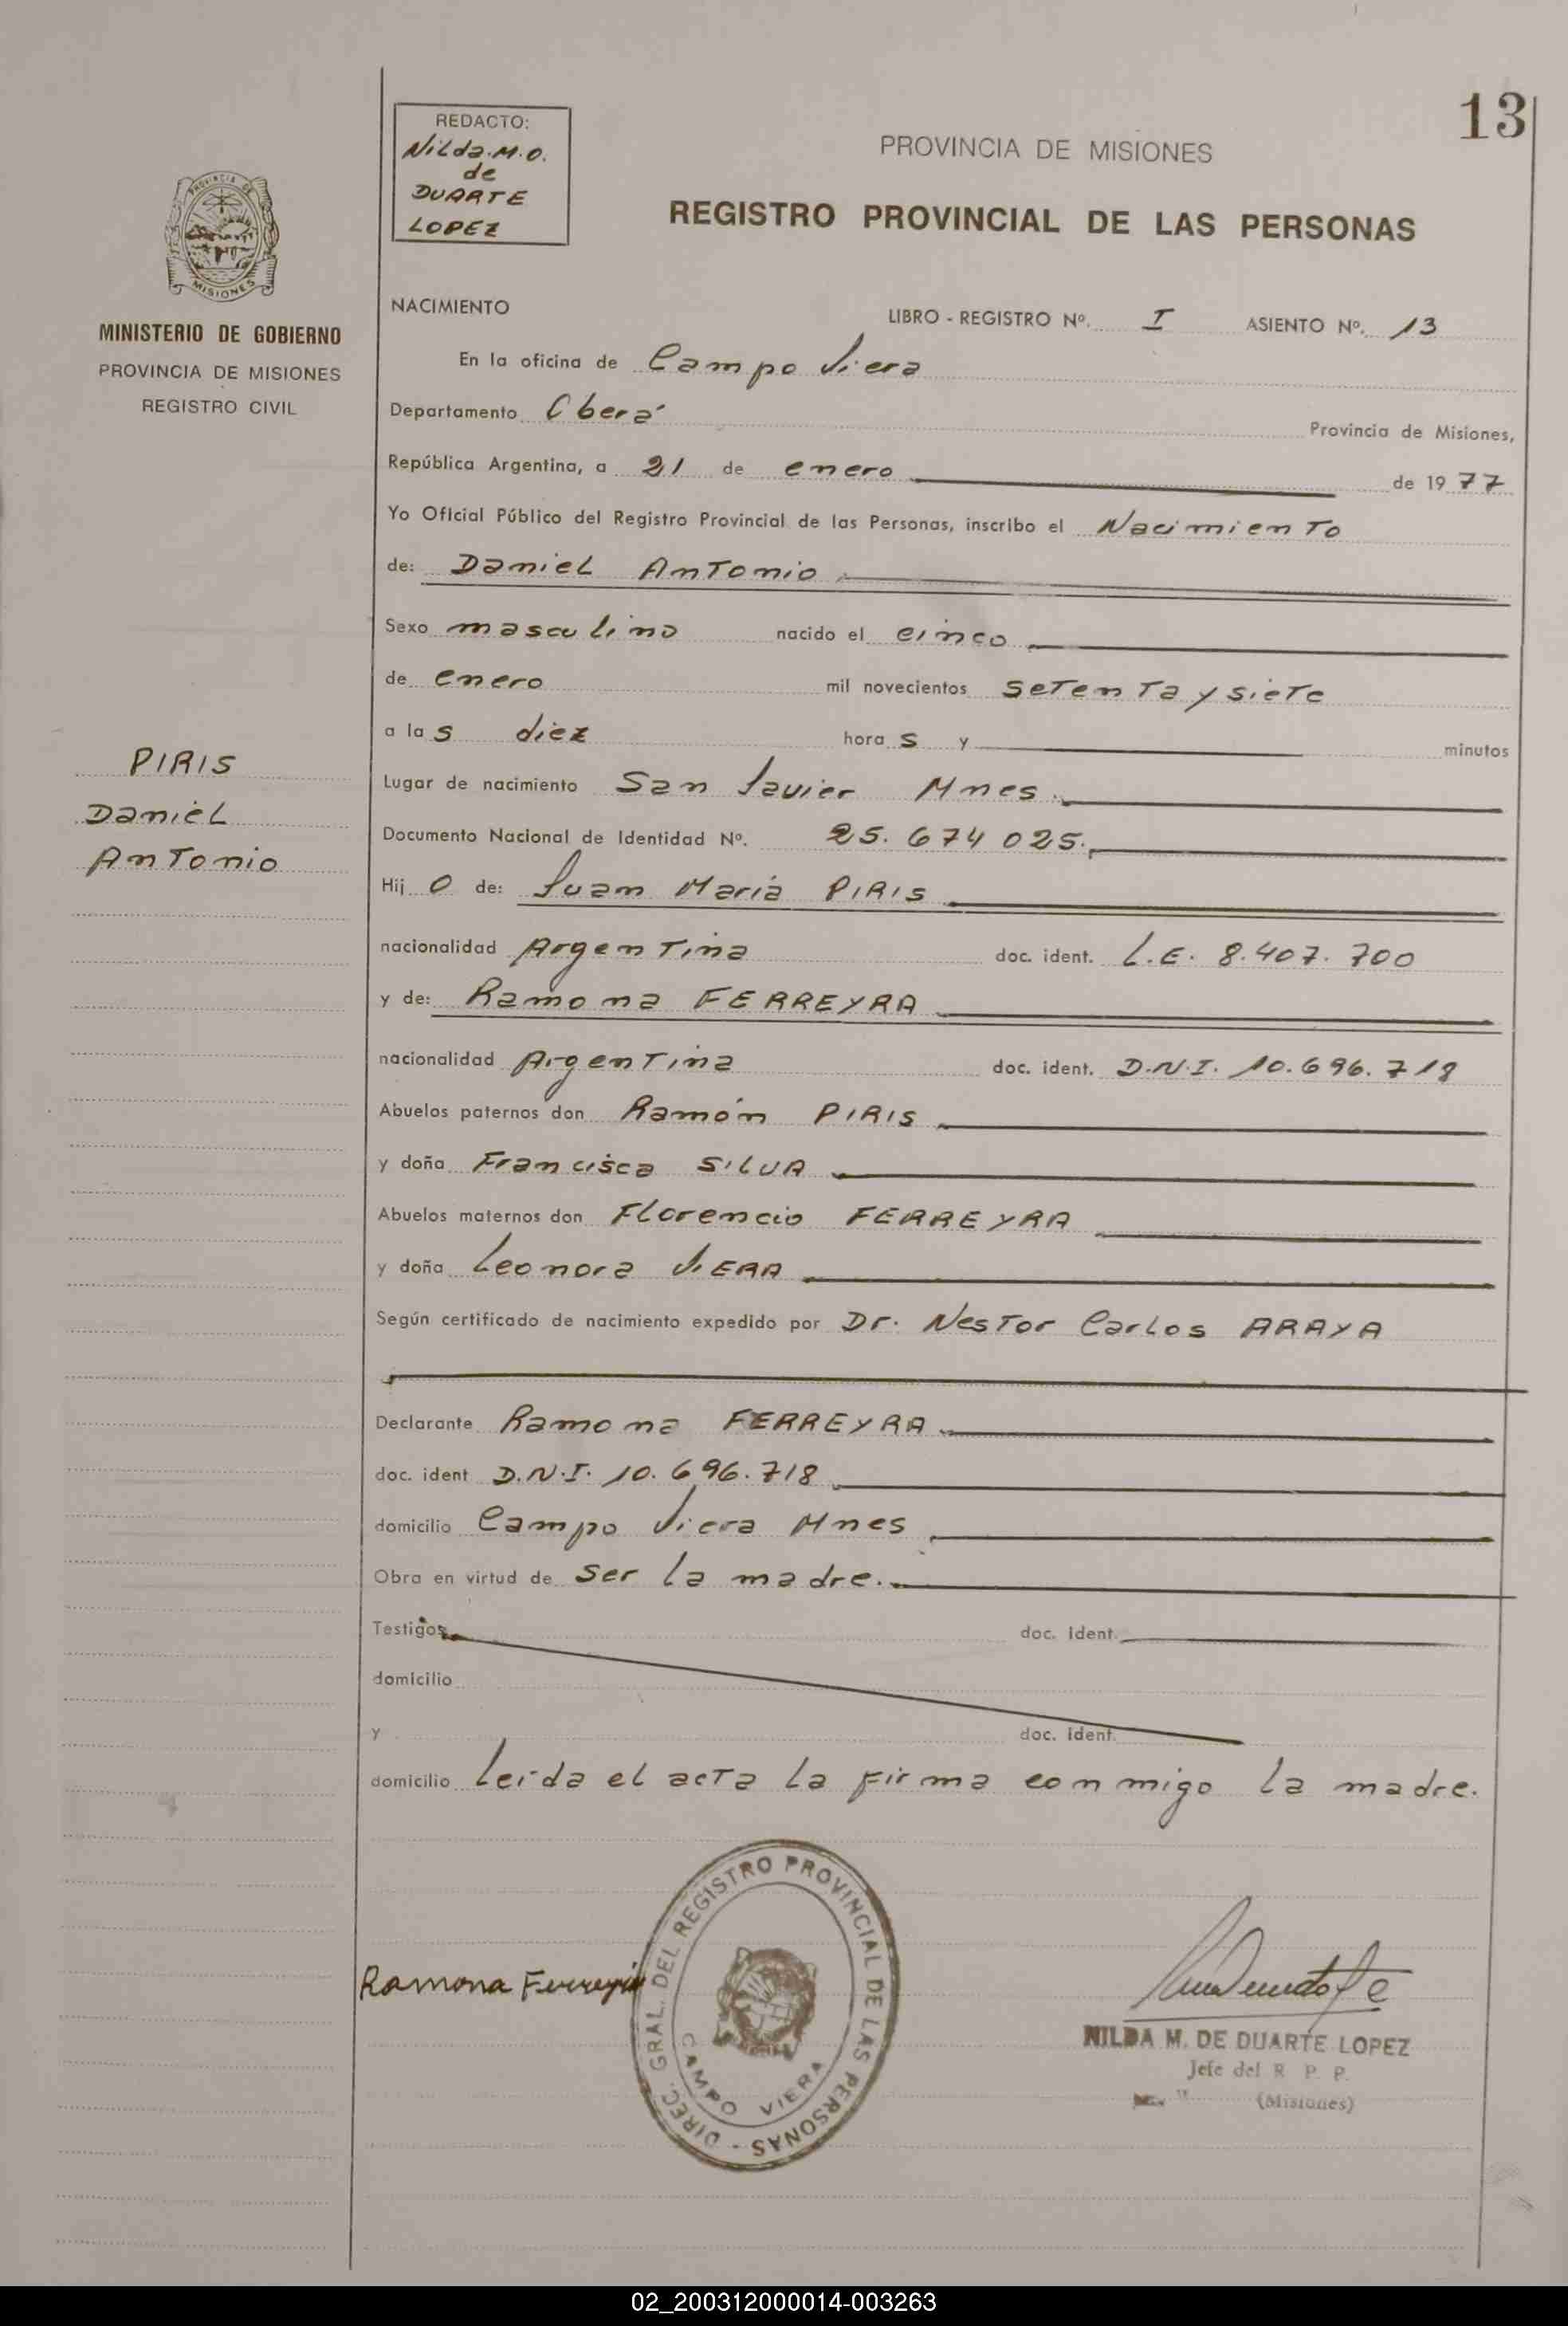 13
REDACTO:
Nilda.M.O.
de
DUARTE
LOPEZ
PROVINCIA DE MISIONES
REGISTRO PROVINCIAL DE LAS PERSONAS
PROVINCIA DE
MISIONES
MINISTERIO DE GOBIERNO
PROVINCIA DE MISIONES
REGISTRO CIVIL
NACIMIENTO LIBRO - REGISTRO Nº. I ASIENTO Nº. 13
En la oficina de Campo Viera
Departamento Oberá Provincia de Misiones,
República Argentina, a 21 de enero de 1977
Yo Oficial Público del Registro Provincial de las Personas, inscribo el Nacimiento
de: Daniel Antonio
Sexo masculino nacido el cinco
de enero mil novecientos setenta y siete
a las diez horas y minutos
Lugar de nacimiento San Javier Mnes.
Documento Nacional de Identidad Nº. 25.674025.
PIRIS
Daniel
Antonio
Hijo de: Juan María PIRIS
nacionalidad Argentina doc. ident. L.E. 8.407.700
y de: Ramona FERREYRA
nacionalidad Argentina doc. ident. D.N.I. 10.696.718
Abuelos paternos don Ramón PIRIS
y doña Francisca SILVA
Abuelos maternos don Florencio FERREYRA
y doña Leonora ViERA
Según certificado de nacimiento expedido por Dr. Nestor Carlos ARAYA
Declarante Ramona FERREYRA
doc. ident D.N.I. 10.696.718
domicilio Campo Viera Mnes
Obra en virtud de ser la madre.
Testigos doc. ident.
domicilio
y doc. ident.
domicilio Leída el acta la firma conmigo la madre.
Ramona Ferreyra
DIREC. GRAL. DEL REGISTRO PROVINCIAL DE LAS PERSONAS -
CAMPO VIERA
NILDA M. DE DUARTE LOPEZ
Jefe del R. P. P.
(Misiones)
02_200312000014-003263